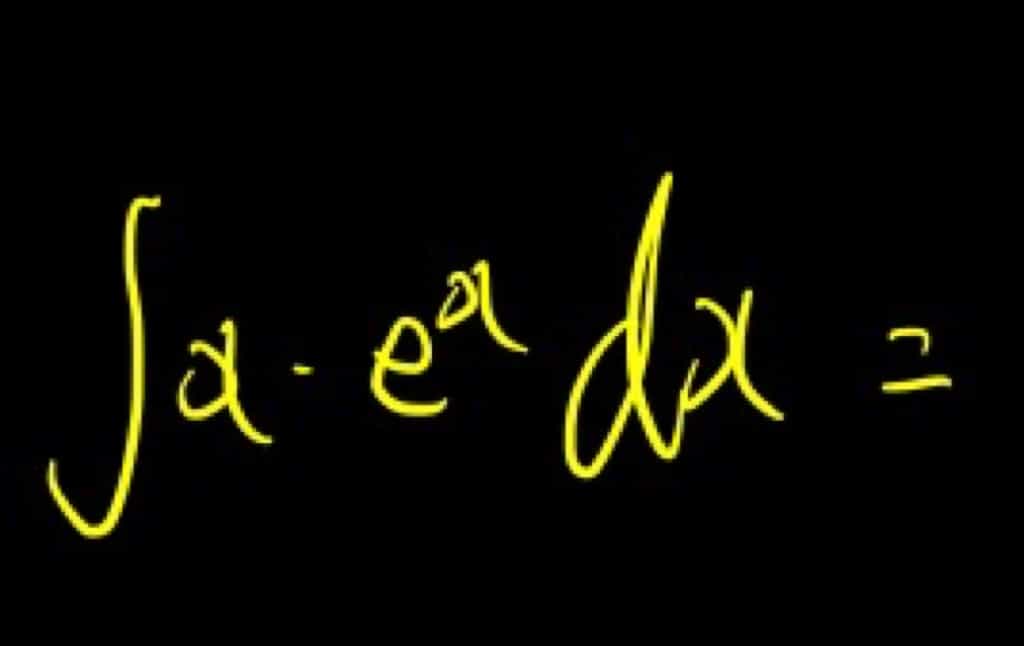 ∫x · eˣ dx =